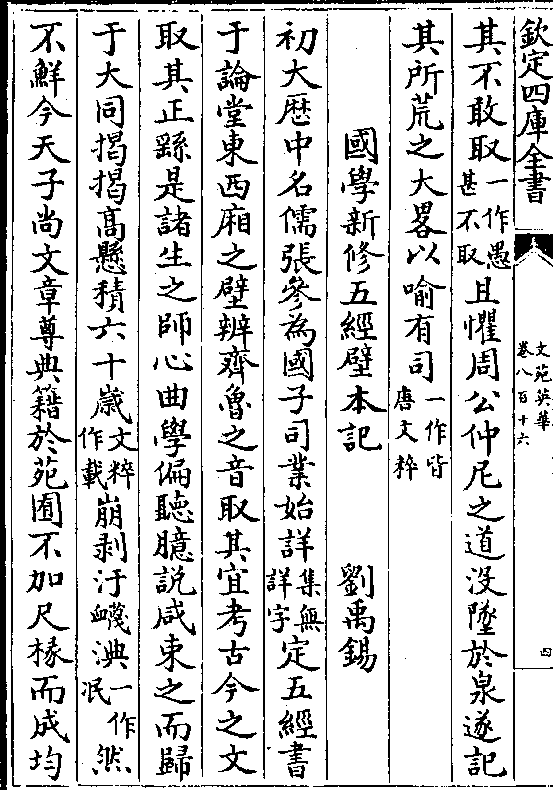 欽定四庫全書
文苑英華
卷八百十六
四
其不敢取一作愚甚不取且懼周公仲尼之道没墜於泉遂記
其所荒之大畧以喻有司一作皆唐文粹
國學新修五經壁本記 劉禹錫
初大厯中名儒張參為國子司業始詳集無詳字定五經書
于論堂東西廂之壁辨齊魯之音取其宜考古今之文
取其正繇是諸生之師心曲學偏聽臆說咸束之而歸
于大同揭揭高懸積六十歲文粹作載崩剥汙衊淟一作泯然
不鮮今天子尚文章尊典籍於苑囿不加尺椽而成均